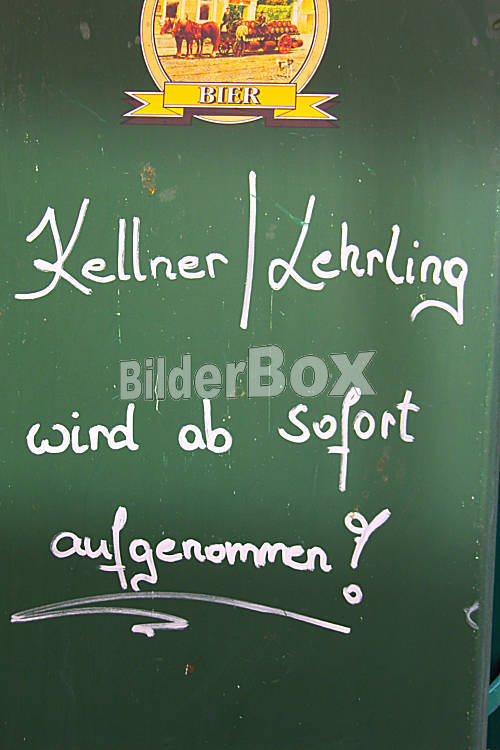 BIER
Kellner/Lehrling
BilderBOX
wird ab sofort
aufgenommen!